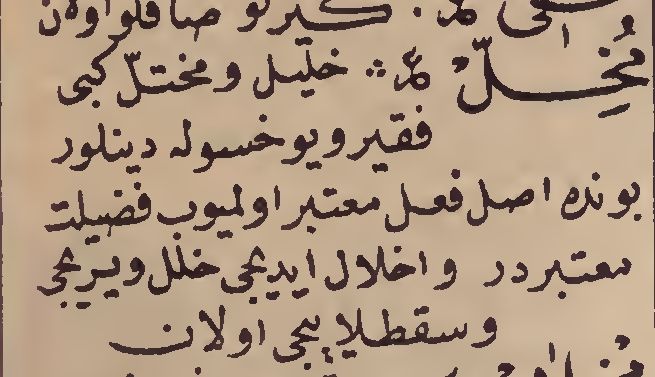 كيزلو صاقلو اولان
مُخِلّ خليل ومختلّ كبى
فقير ويوخسوله دينلور
بونده اصل فعل معتبر اولميوب فضيلت
معتبردر واخلال ايديجى خلل ويريجى
وسقطلايجى اولان